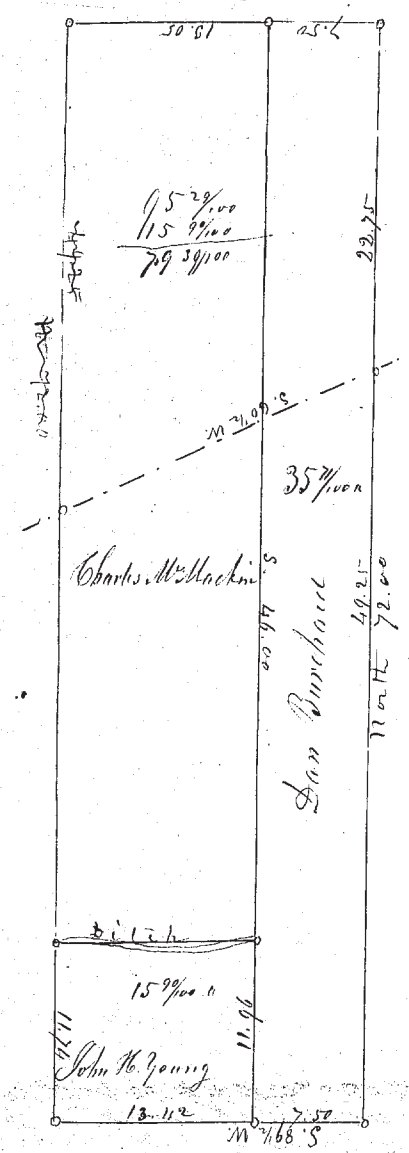 13.05
7.50
95 29/100
15 90/100
79 39/100
22.75
S. 60 1/2 W.
35 71/100 a
Charles McMackin
S. 46.00
Dan Burchard
49.25
North 72.00
Ditch
15 90/100 a
11.74
11.96
John H. Young
13.42
7.50
S. 89 1/2 W